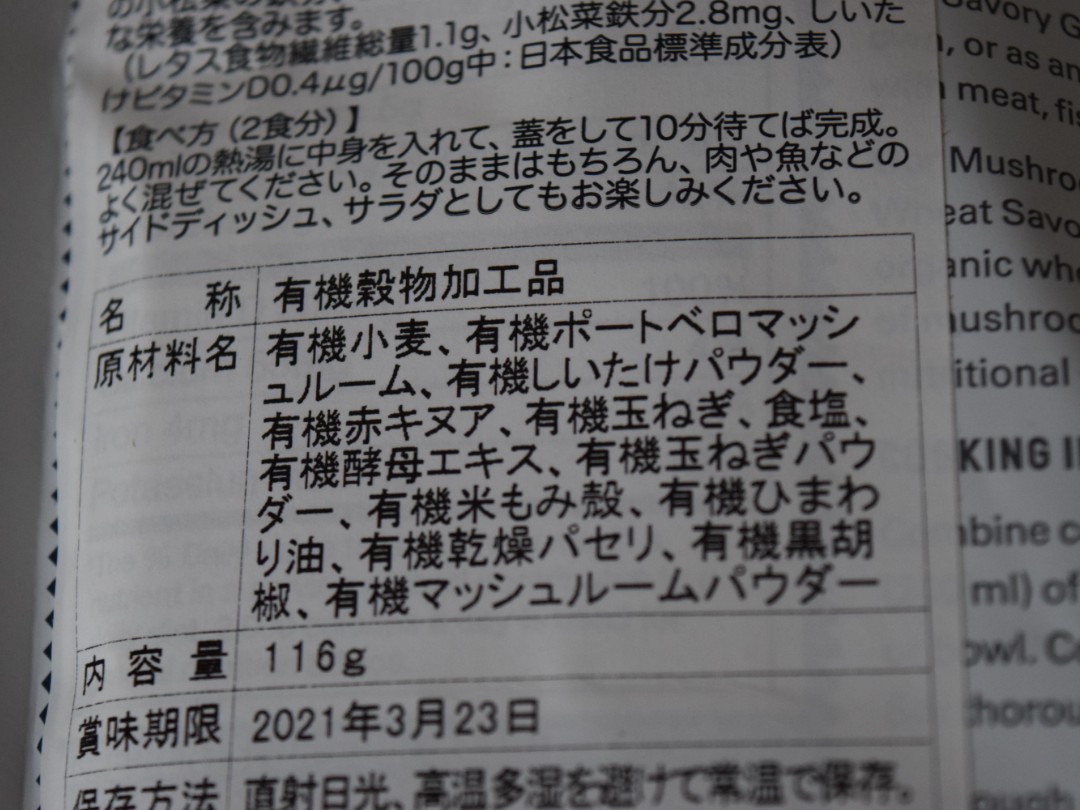 の小松菜の鉄分、
な栄養を含みます。
（レタス食物繊維総量1.1g、小松菜鉄分2.8mg、しいた
けビタミンD0.4μg/100g中：日本食品標準成分表）
【食べ方（2食分）】
240mlの熱湯に中身を入れて、蓋をして10分待てば完成。
よく混ぜてください。そのままはもちろん、肉や魚などの
サイドディッシュ、サラダとしてもお楽しみください。
名称 有機穀物加工品
原材料名 有機小麦、有機ポートベロマッシ
ュルーム、有機しいたけパウダー、
有機赤キヌア、有機玉ねぎ、食塩、
有機酵母エキス、有機玉ねぎパウ
ダー、有機米もみ殻、有機ひまわ
り油、有機乾燥パセリ、有機黒胡
椒、有機マッシュルームパウダー
内容量 116g
賞味期限 2021年3月23日
保存方法 直射日光、高温多湿を避けて常温で保存。
Savory G
, or as an
meat, fis
Mushro
eat Savo
anic who
mushroo
itional
KING I
bine c
ml) of
owl. Co
thorou